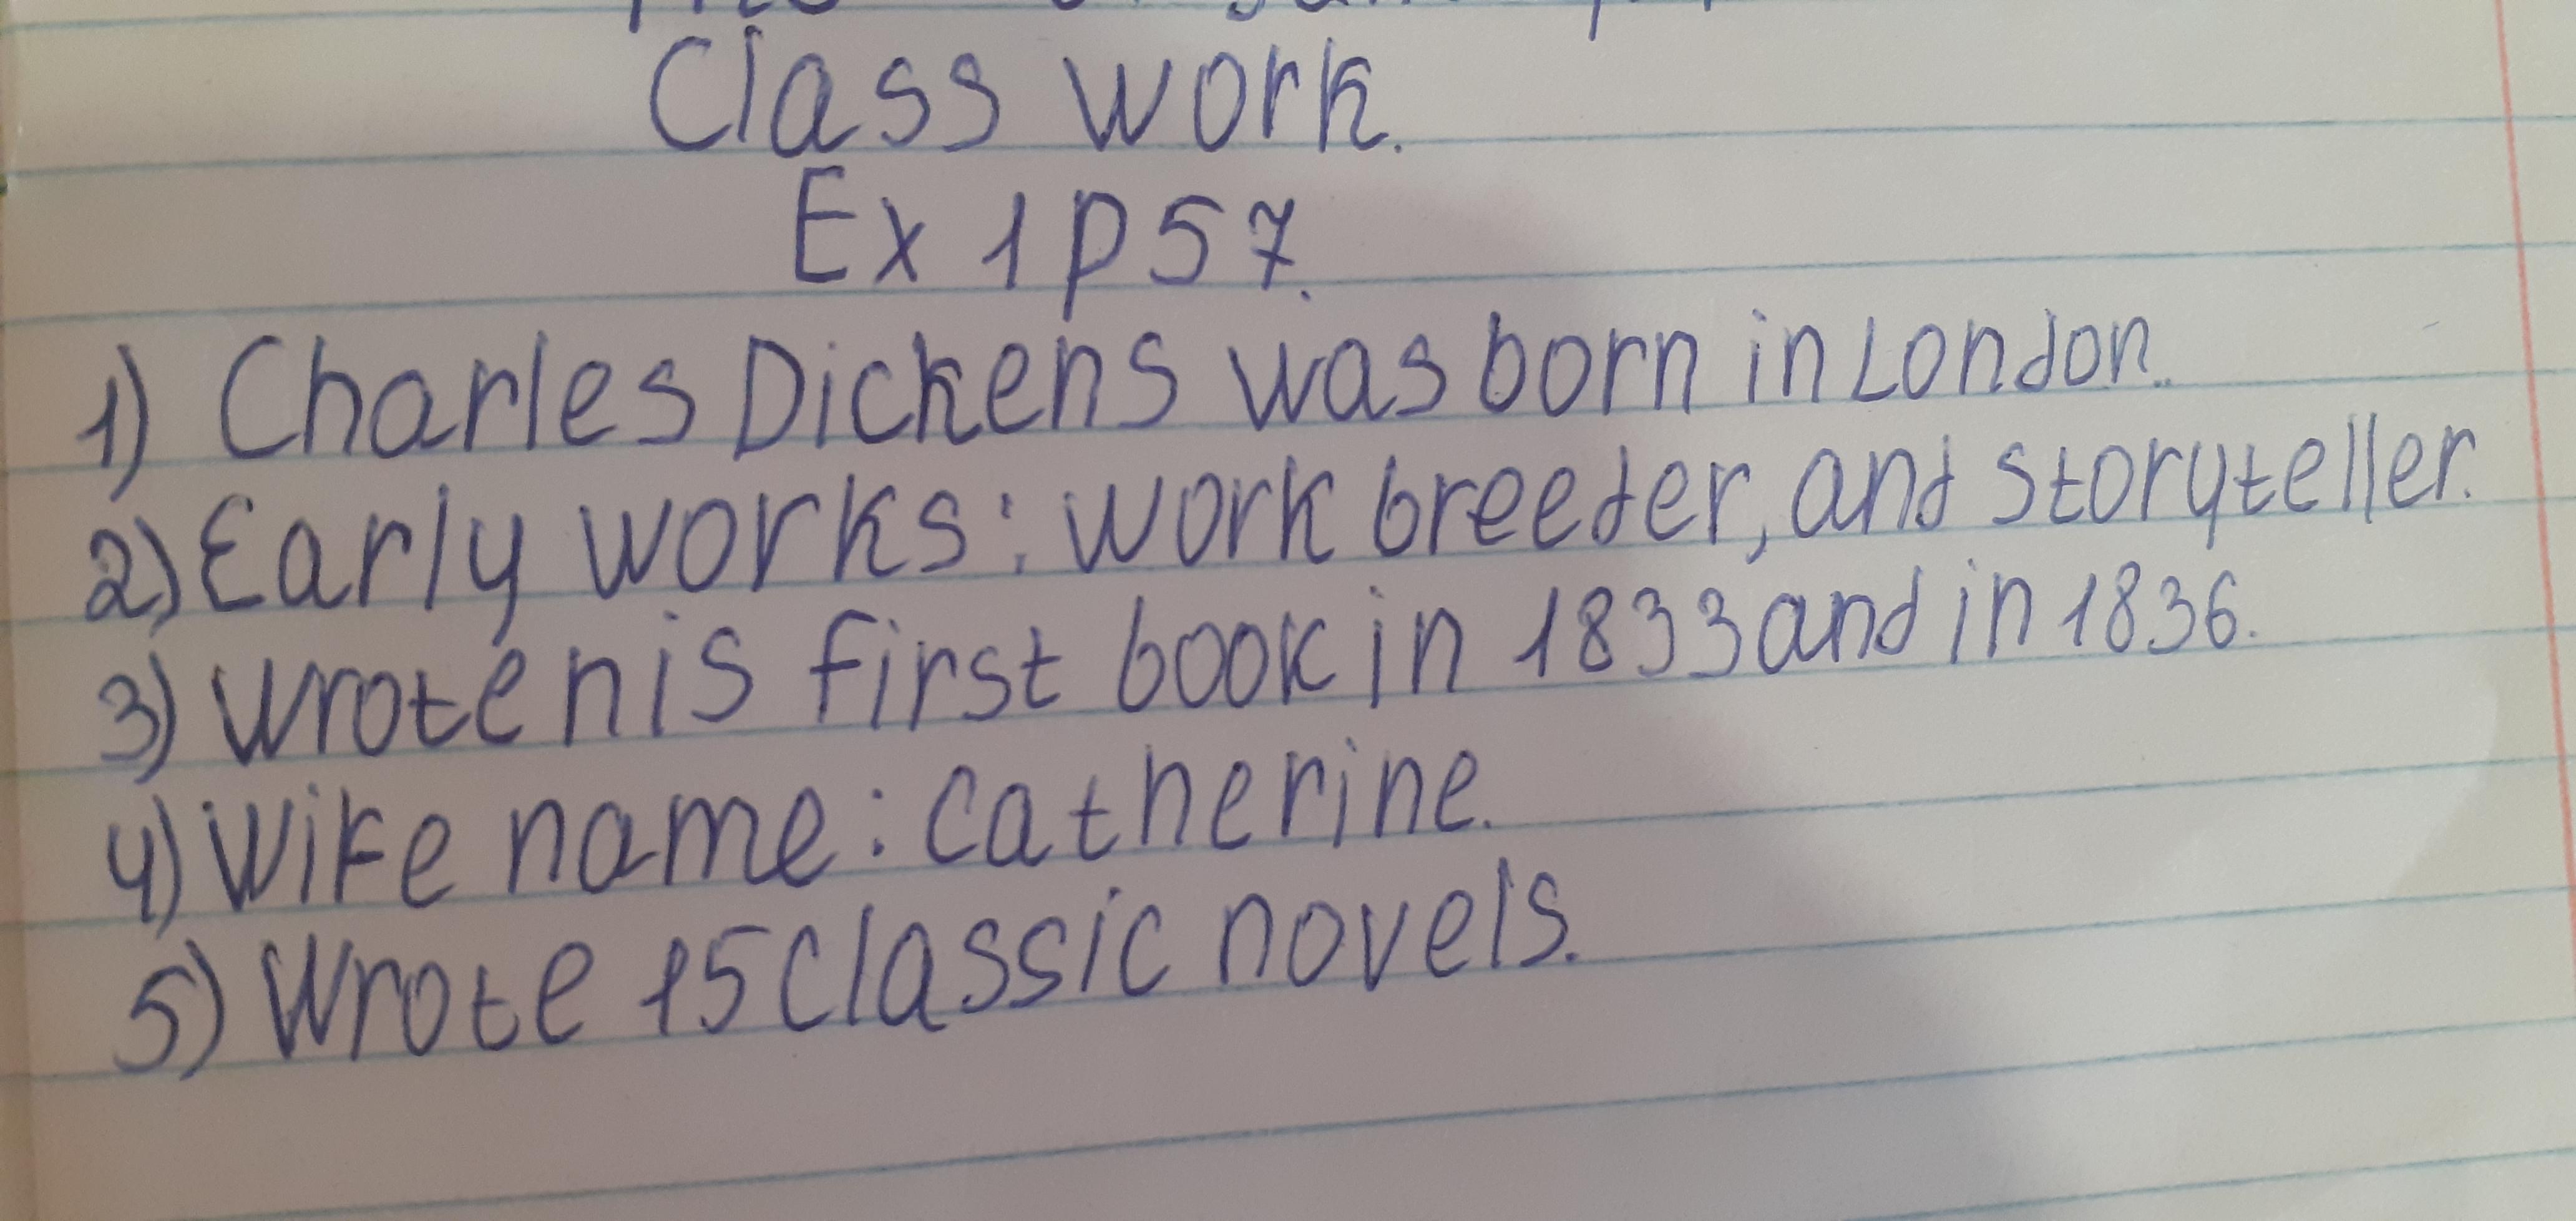 Class work.
Ex 1 p 57.
1) Charles Dickens was born in London.
2) Early works: work breeder, and storyteller.
3) Wrote nis first book in 1833 and in 1836.
4) Wife name: Catherine.
5) Wrote 15 classic novels.